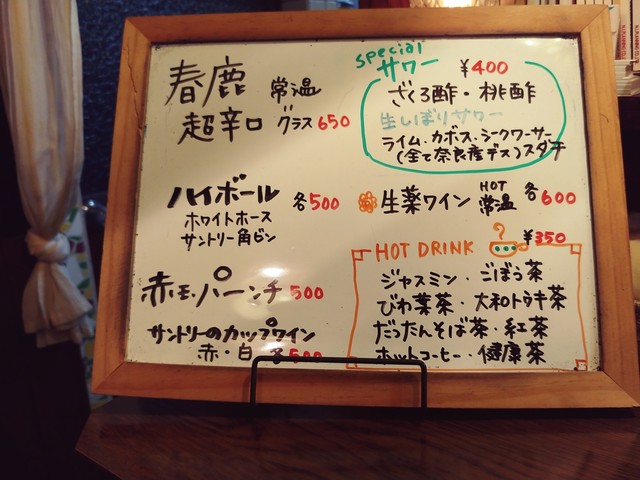 春鹿 常温
超辛口 グラス 650
ハイボール 各500
ホワイトホース
サントリー角ビン
赤玉パーンチ 500
サントリーのカップワイン
赤・白 各500
special
サワー ¥400
ざくろ酢・桃酢
生しぼりサワー
ライム・カボス・シークワーサー
(全て奈良産デス)スダチ
生薬ワイン HOT 常温 各600
HOT DRINK ¥350
ジャスミン・ごぼう茶
びわ葉茶・大和トウキ茶
だったんそば茶・紅茶
ホットコーヒー・健康茶